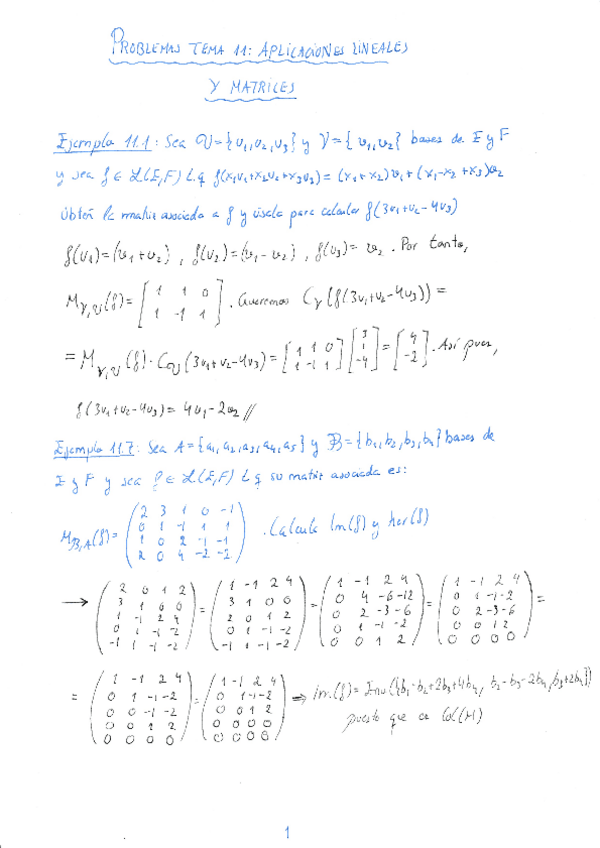 PROBLEMAS TEMA 11: APLICACIONES LINEALES
Y MATRICES
Ejemplo 11.1: Sea U={u₁,u₂,u₃} y V={v₁,v₂} bases de E y F
y sea f ∈ L(E,F) t.q f(x₁u₁+x₂u₂+x₃u₃)=(x₁+x₂)v₁+(x₁-x₂+x₃)v₂
Obtén la matriz asociada a f y úsala para calcular f(3u₁+u₂-4u₃)
f(u₁)=(v₁+v₂), f(u₂)=(v₁-v₂), f(u₃)=v₂. Por tanto,
M_V,U(f)=[1 1 0; 1 -1 1]. Queremos C_V(f(3u₁+u₂-4u₃))=
=M_V,U(f)·C_U(3u₁+u₂-4u₃)=[1 1 0; 1 -1 1][3; 1; -4]=[4; -2]. Así pues,
f(3u₁+u₂-4u₃)=4v₁-2v₂//
Ejemplo 11.7: Sea A={a₁,a₂,a₃,a₄,a₅} y B={b₁,b₂,b₃,b₄} bases de
E y F y sea f ∈ L(E,F) t.q su matriz asociada es:
M_B,A(f)=(2 3 1 0 -1; 0 1 -1 1 1; 1 0 2 -1 -1; 2 0 4 -2 -2). Calcula Im(f) y ker(f)
→ (2 0 1 2; 3 1 0 0; 1 -1 2 4; 0 1 -1 -2; -1 1 -1 -2)=(1 -1 2 4; 3 1 0 0; 2 0 1 2; 0 1 -1 -2; -1 1 -1 -2)=(1 -1 2 4; 0 4 -6 -12; 0 2 -3 -6; 0 1 -1 -2; 0 0 1 2)=(1 -1 2 4; 0 1 -1 -2; 0 2 -3 -6; 0 0 1 2; 0 0 0 0)=
=(1 -1 2 4; 0 1 -1 -2; 0 0 -1 -2; 0 0 1 2; 0 0 0 0)=(1 -1 2 4; 0 1 -1 -2; 0 0 1 2; 0 0 0 0; 0 0 0 0) ⇒ Im(f)=Env({b₁-b₂+2b₃+4b₄, b₂-b₃-2b₄, b₃+2b₄})
puesto que es Col(M)
1